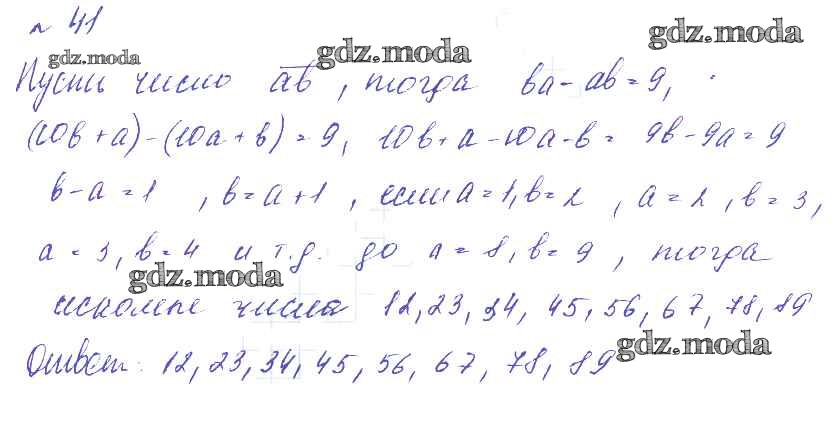 № 41
gdz.moda gdz.moda gdz.moda
Пусть число ab, тогда ba - ab = 9,
(10b + a) - (10a + b) = 9, 10b + a - 10a - b = 9b - 9a = 9
b - a = 1, b = a + 1, если a = 1, b = 2, a = 2, b = 3,
a = 3, b = 4 и т.д. до a = 8, b = 9, тогда
gdz.moda
искомые числа 12, 23, 34, 45, 56, 67, 78, 89
gdz.moda
Ответ: 12, 23, 34, 45, 56, 67, 78, 89